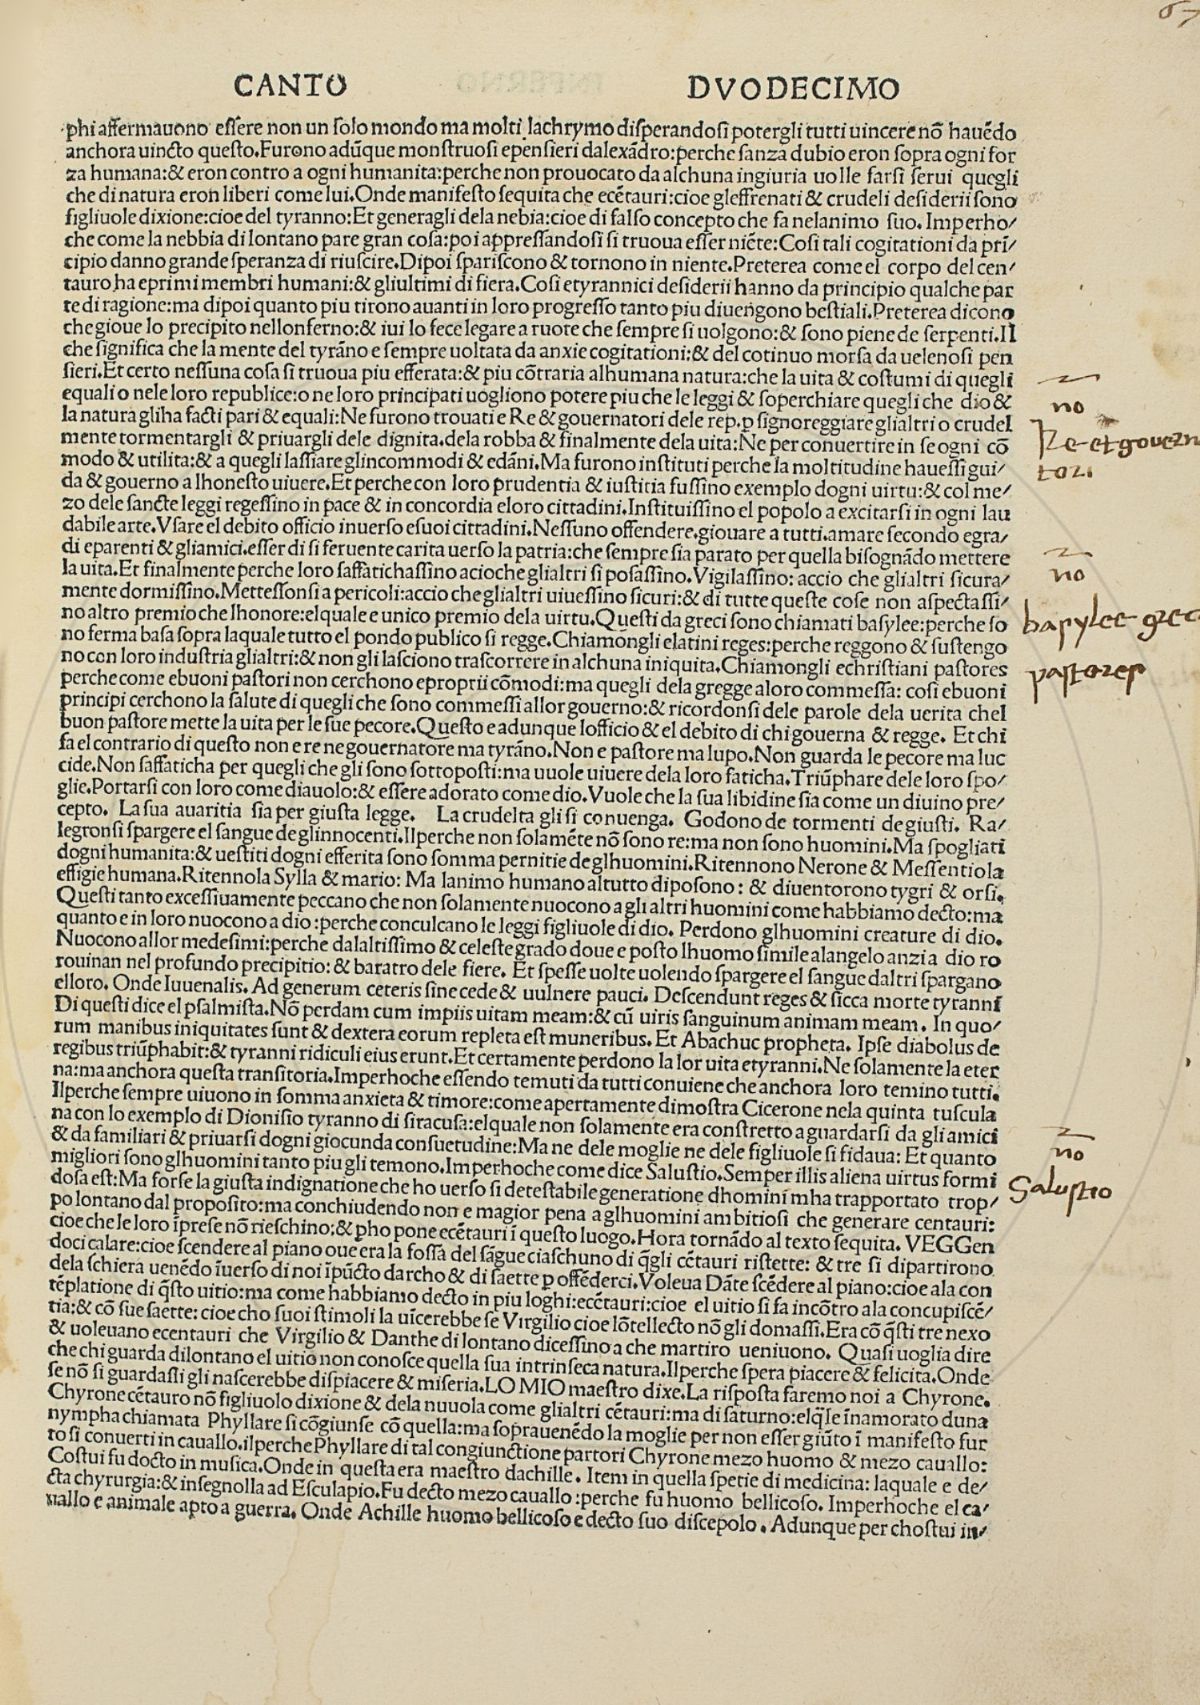 67
CANTO DVODECIMO
phi affermauono essere non un solo mondo ma molti lachrymo disperandosi potergli tutti uincere nõ hauẽdo
anchora uincto questo.Furono adũque monstruosi epensieri dalexãdro:perche sanza dubio eron sopra ogni for
za humana:& eron contro a ogni humanita:perche non prouocato da alchuna ingiuria uolle farsi serui quegli
che di natura eron liberi come lui.Onde manifesto sequita che ecẽtauri:cioe gleffrenati & crudeli desiderii sono
figliuole dixione:cioe del tyranno:Et generagli dela nebia:cioe di falso concepto che fa nelanimo suo. Imperho/
che come la nebbia di lontano pare gran cosa:poi appressandosi si truoua esser niẽte:Cosi tali cogitationi da prĩ/
cipio danno grande speranza di riuscire.Dipoi spariscono & tornono in niente.Preterea come el corpo del cen/
tauro ha eprimi membri humani:& gliultimi di fiera.Cosi etyrannici desiderii hanno da principio qualche par
te di ragione:ma dipoi quanto piu tirono auanti in loro progresso tanto piu diuengono bestiali.Preterea dicono
che gioue lo precipito nellonferno:& iui lo fece legare a ruote che sempre si uolgono:& sono piene de serpenti.Il
che significa che la mente del tyrãno e sempre uoltata da anxie cogitationi:& del cotinuo morsa da uelenosi pen
sieri.Et certo nessuna cosa si truoua piu efferata:& piu cõtraria alhumana natura:che la uita & costumi di quegli
equali o nele loro republice:o ne loro principati uogliono potere piu che le leggi & soperchiare quegli che dio &
la natura gliha facti pari & equali:Ne furono trouati e Re & gouernatori dele rep.p signoreggiare glialtri o crudel
mente tormentargli & priuargli dele dignita.dela robba & finalmente dela uita:Ne per conuertire in se ogni cõ
modo & utilita:& a quegli lassiare glincommodi & edãni.Ma furono instituti perche la moltitudine hauessi gui/
da & gouerno a lhonesto uiuere.Et perche con loro prudentia & iustitia fussino exemplo dogni uirtu:& col me/
zo dele sancte leggi regessino in pace & in concordia eloro cittadini.Instituissino el popolo a excitarsi in ogni lau
dabile arte.Vsare el debito officio inuerso esuoi cittadini.Nessuno offendere.giouare a tutti.amare secondo egra/
di eparenti & gliamici.esser di si feruente carita uerso la patria:che sempre sia parato per quella bisognãdo mettere
la uita.Et finalmente perche loro saffatichassino acioche glialtri si posassino.Vigilassino: accio che glialtri sicura/
mente dormissino.Mettessonsi a pericoli:accio che glialtri uiuessino sicuri:& di tutte queste cose non aspectassi/
no altro premio che lhonore:elquale e unico premio dela uirtu.Questi da greci sono chiamati basylee:perche so
no ferma basa sopra laquale tutto el pondo publico si regge.Chiamongli elatini reges:perche reggono & sustengo
no con loro industria glialtri:& non gli lasciono trascorrere in alchuna iniquita.Chiamongli echristiani pastores
perche come ebuoni pastori non cerchono eproprii cõmodi:ma quegli dela gregge a loro commessa: cosi ebuoni
principi cerchono la salute di quegli che sono commessi allor gouerno:& ricordonsi dele parole dela uerita chel
buon pastore mette la uita per le sue pecore.Questo e adunque lofficio & el debito di chi gouerna & regge. Et chi
fa el contrario di questo non e re ne gouernatore ma tyrãno.Non e pastore ma lupo.Non guarda le pecore ma luc
cide.Non saffaticha per quegli che gli sono sottoposti:ma uuole uiuere dela loro faticha.Triũphare dele loro spo/
glie.Portarsi con loro come diauolo:& essere adorato come dio.Vuole che la sua libidine sia come un diuino pre/
cepto. La sua auaritia sia per giusta legge. La crudelta gli si conuenga. Godono de tormenti de giusti. Ra/
legronsi spargere el sangue de glinnocenti.Ilperche non solamẽte nõ sono re:ma non sono huomini.Ma spogliati
dogni humanita:& uestiti dogni efferita sono somma pernitie de glhuomini.Ritennono Nerone & Messentiola
effigie humana.Ritennola Sylla & mario: Ma lanimo humano altutto diposono: & diuentorono tygri & orsi.
Questi tanto excessiuamente peccano che non solamente nuocono a gli altri huomini come habbiamo decto:ma
quanto e in loro nuocono a dio:perche conculcano le leggi figliuole di dio. Perdono glhuomini creature di dio.
Nuocono allor medesimi:perche dalaltissimo & celeste grado doue e posto lhuomo simile alangelo anzi a dio ro
rouinan nel profundo precipitio: & baratro dele fiere. Et spesse uolte uolendo spargere el sangue daltri spargano
elloro. Onde Iuuenalis. Ad generum ceteris sine cede & uulnere pauci. Descendunt reges & sicca morte tyranni
Di questi dice el psalmista.Nõ perdam cum impiis uitam meam:& cũ uiris sanguinum animam meam. In quo/
rum manibus iniquitates sunt & dextera eorum repleta est muneribus. Et Abachuc propheta. Ipse diabolus de
regibus triũphabit:& tyranni ridiculi eius erunt.Et certamente perdono la lor uita etyranni.Ne solamente la eter
na:ma anchora questa transitoria.Imperhoche essendo temuti da tutti conuiene che anchora loro temino tutti.
Ilperche sempre uiuono in somma anxieta & timore:come apertamente dimostra Cicerone nela quinta tuscula
na con lo exemplo di Dionisio tyranno di siracusa:elquale non solamente era constretto a guardarsi da gli amici
& da familiari & priuarsi dogni giocunda consuetudine:Ma ne dele moglie ne dele figliuole si fidaua: Et quanto
migliori sono glhuomini tanto piu gli temono.Imperhoche come dice Salustio.Semper illis aliena uirtus formi
dosa est:Ma forse la giusta indignatione che ho uerso si detestabile generatione dhomini mha trapportato trop/
po lontano dal proposito:ma conchiudendo non e magior pena a glhuomini ambitiosi che generare centauri:
cioe che le loro ĩprese nõ rieschino;& pho pone ecẽtauri ĩ questo luogo.Hora tornãdo al texto sequita. VEGGen
doci calare:cioe scendere al piano oue era la fossa del sãgue ciaschuno di q̃gli cẽtauri ristette: & tre si dipartirono
dela schiera uenẽdo ĩuerso di noi ĩpũcto darcho & di saette p offẽderci.Voleua Dãte scẽdere al piano:cioe ala con
tẽplatione di q̃sto uitio:ma come habbiamo decto in piu loghi:ecẽtauri:cioe el uitio si fa incõtro ala concupiscẽ/
tia:& cõ sue saette: cioe cho suoi stimoli la uĩcerebbe se Virgilio cioe lõtellecto nõ gli domassi.Era cõ q̃sti tre nexo
& uoleuano ecentauri che Virgilio & Danthe di lontano dicessino a che martiro ueniuono. Quasi uoglia dire
che chi guarda dilontano el uitio non conosce quella sua intrinseca natura.Ilperche spera piacere & felicita.Onde
se nõ si guardassi gli nascerebbe dispiacere & miseria.LO MIO maestro dixe.La risposta faremo noi a Chyrone.
Chyrone cẽtauro nõ figliuolo dixione & dela nuuola come glialtri cẽtauri:ma di saturno:elq̃le ĩnamorato duna
nympha chiamata Phyllare si cõgiunse cõ quella:ma soprauenẽdo la moglie per non esser giũto ĩ manifesto fur
to si conuerti in cauallo.ilperche Phyllare di tal congiunctione partori Chyrone mezo huomo & mezo cauallo:
Costui fu docto in musica.Onde in questa era maestro dachille. Item in quella spetie di medicina: laquale e de/
cta chyrurgia:& insegnolla ad Esculapio.Fu decto mezo cauallo:perche fu huomo bellicoso. Imperhoche el ca/
uallo e animale apto a guerra. Onde Achille huomo bellicoso e decto suo discepolo. Adunque per chostui in/
no
Re et governa
tori
no
basylee grec
pastores
no
Salustio